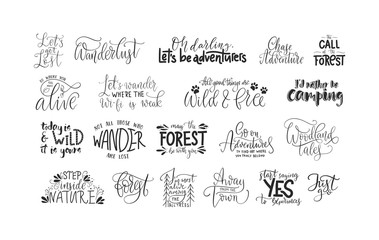 Let's
get
Lost
Wanderlust
Oh darling,
Let's be adventurers
Chase
Adventure
THE
CALL
OF THE
FOREST
alive
Let's wander
WHERE THE
Wi-fi is weak
All good things are
Wild & free
I'd rather be
camping
today is
& WILD
it is yours
NOT ALL THOSE WHO
WANDER
ARE LOST
may the
FOREST
be with you
Go on
Adventures
TO FIND OUT WHERE
YOU TRULY BELONG
Woodland
Tales
STEP
inside
NATURE
Forest
alive
AMONG THE
Away
from the
town
start saying
YES
to
Just
go